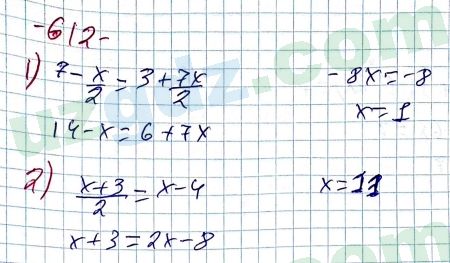 -612-
1) 7 - x/2 = 3 + 7x/2    -8x = -8
x = 1
14 - x = 6 + 7x
2) x+3/2 = x - 4    x = 11
x + 3 = 2x - 8